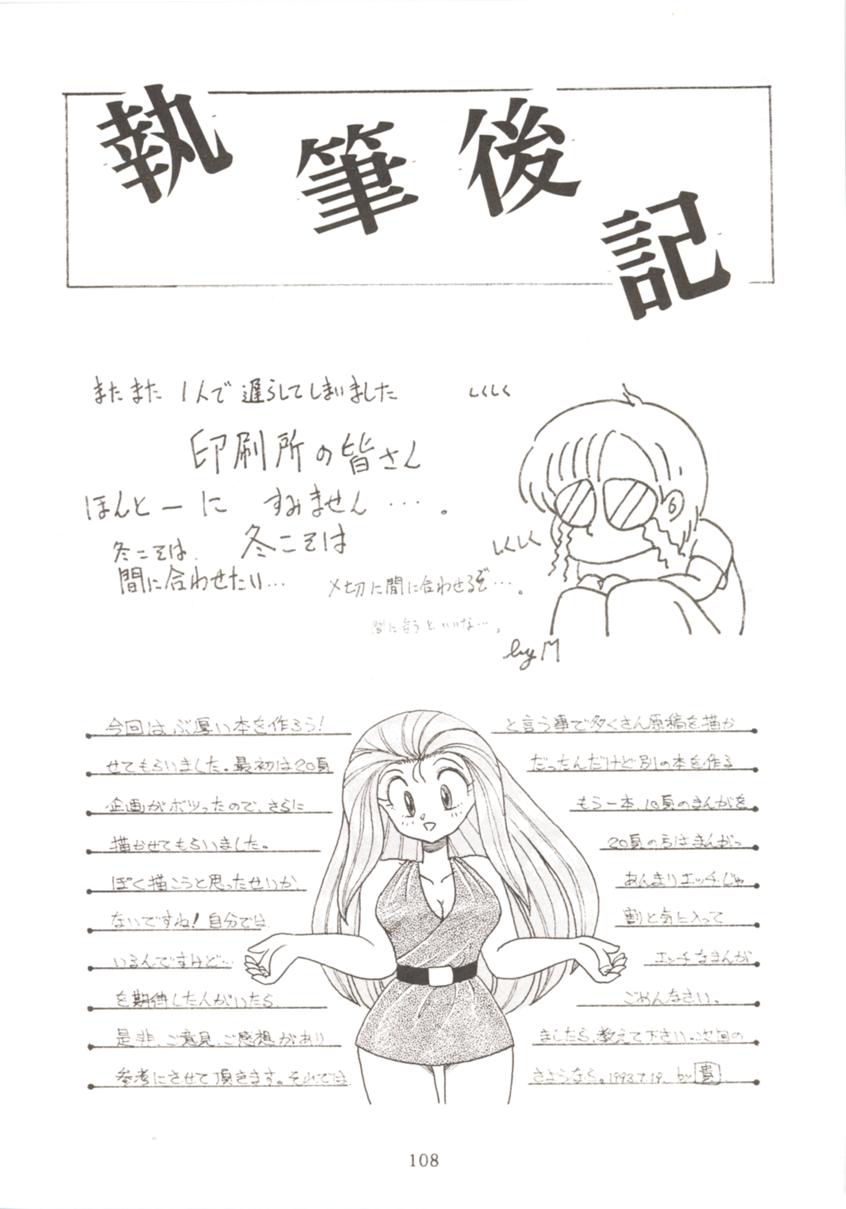 執筆後記
またまた 1人で遅らしてしまいました
しくしく
印刷所の皆さん
ほんとーに すみません…。
しくしく
冬こそは、 冬こそは
間に合わせたい… 〆切に間に合わせるぞ…。
間に合うといいな…。
by M
今回はぶ厚い本を作ろう! と言う事で多くさん原稿を描か
せてもらいました。最初は20頁 だったんだけど別の本を作る
企画がボツったので、さらに もう一本、10頁のまんがを
描かせてもらいました。 20頁の方はまんがっ
ぽく描こうと思ったせいか あんまりエッチじゃ
ないですね!自分では 割と気に入って
いるんですけど… エッチなまんが
を期待した人がいたら ごめんなさい。
是非、ご意見、ご感想があり ましたら、教えて下さい。次回の
参考にさせて頂きます。それでは さようなら。1993.7.19. by 貴
108